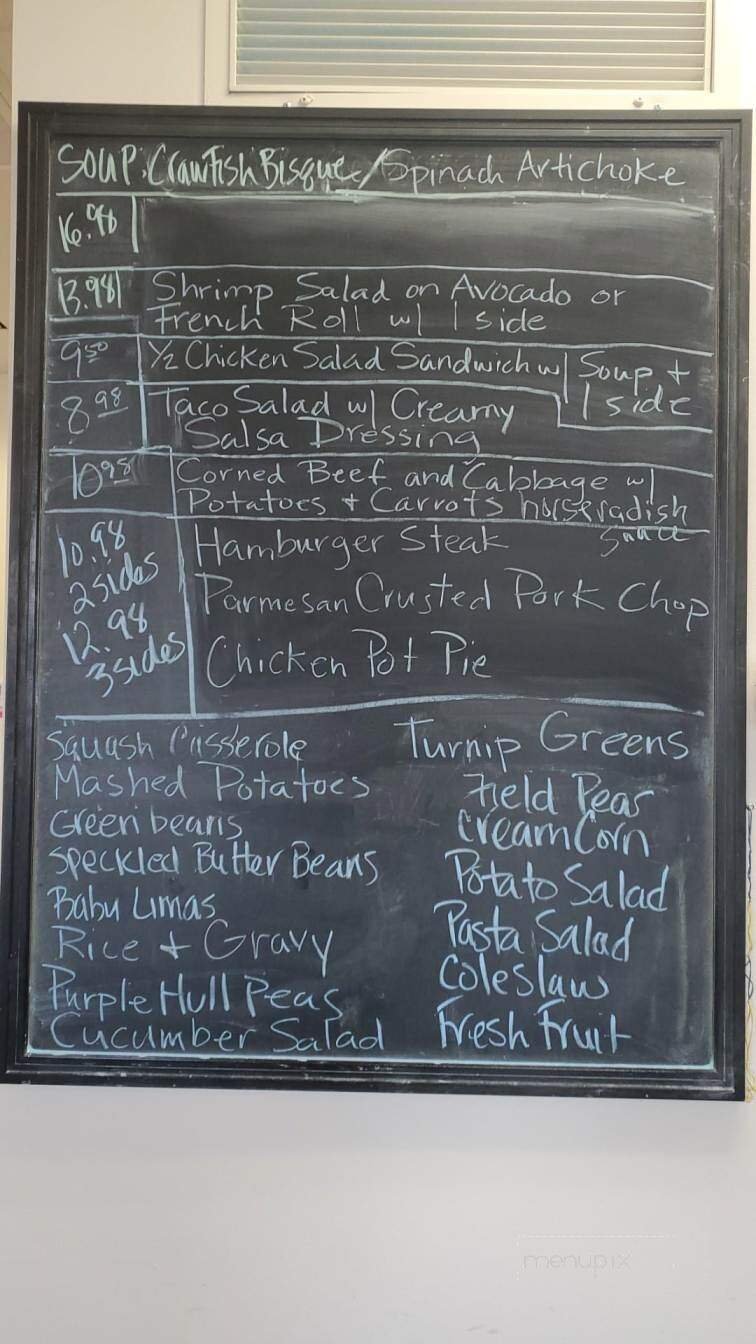 SOUP: Crawfish Bisque/Spinach Artichoke
16.98
13.98 Shrimp Salad on Avocado or
French Roll w/ 1 side
9.50 1/2 Chicken Salad Sandwich w/ Soup +
1 side
8.98 Taco Salad w/ Creamy
Salsa Dressing
10.98 Corned Beef and Cabbage w/
Potatoes + Carrots horseradish
sauce
10.98
2 sides
12.98
3 sides
Hamburger Steak
Parmesan Crusted Pork Chop
Chicken Pot Pie
Squash Casserole
Mashed Potatoes
Green beans
Speckled Butter Beans
Baby Limas
Rice + Gravy
Purple Hull Peas
Cucumber Salad
Turnip Greens
Field Peas
Cream Corn
Potato Salad
Pasta Salad
Coleslaw
Fresh Fruit
menupix